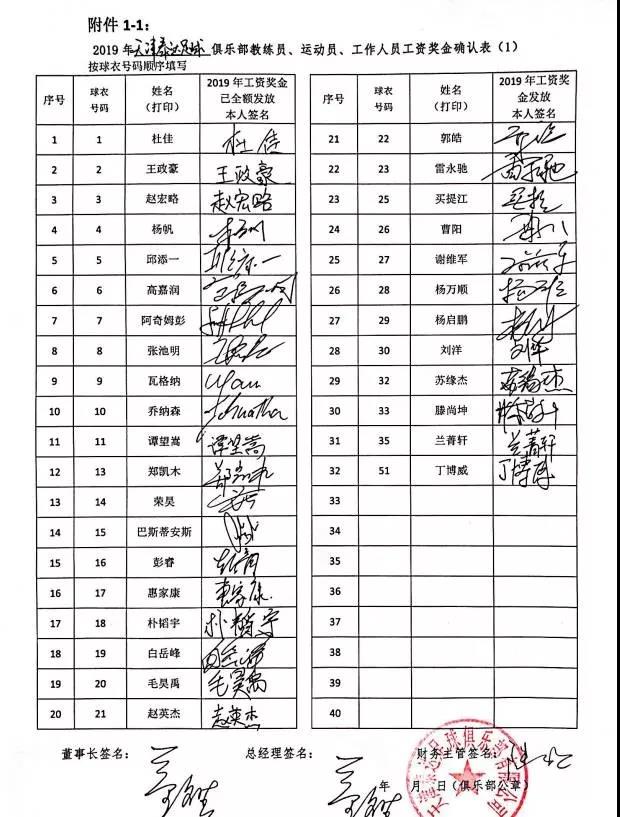 附件 1-1:
2019 年天津泰达足球俱乐部教练员、运动员、工作人员工资奖金确认表（1）
按球衣号码顺序填写
序号 球衣号码 姓名（打印） 2019 年工资奖金已全额发放本人签名
1 1 杜佳 杜佳
2 2 王政豪 王政豪
3 3 赵宏略 赵宏略
4 4 杨帆
5 5 邱添一 邱添一
6 6 高嘉润
7 7 阿奇姆彭
8 8 张池明
9 9 瓦格纳
10 10 乔纳森
11 11 谭望嵩 谭望嵩
12 13 郑凯木
13 14 荣昊
14 15 巴斯蒂安斯
15 16 彭睿
16 17 惠家康 惠家康
17 18 朴韬宇 朴韬宇
18 19 白岳峰
19 20 毛昊禹 毛昊禹
20 21 赵英杰 赵英杰
序号 球衣号码 姓名（打印） 2019 年工资奖金发放本人签名
21 22 郭皓
22 23 雷永驰
23 25 买提江
24 26 曹阳
25 27 谢维军
26 28 杨万顺
27 29 杨启鹏
28 30 刘洋 刘洋
29 32 苏缘杰 苏缘杰
30 33 滕尚坤
31 35 兰菁轩 兰菁轩
32 51 丁博威 丁博威
33
34
35
36
37
38
39
40
董事长签名： 总经理签名： 财务主管签名：
年 月 日（俱乐部公章）